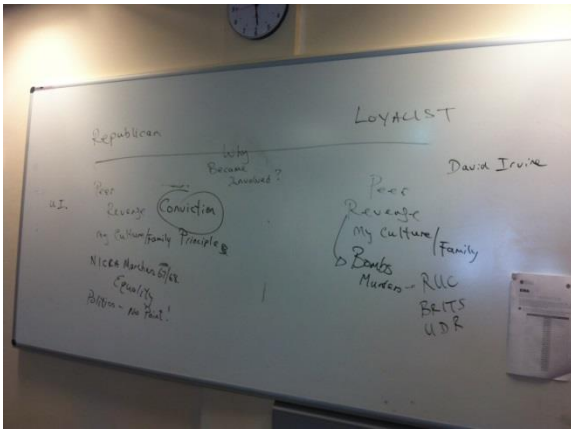 Republican
LOYALIST
Why
Became
Involved?
David Irvine
UI
Peer
Revenge
Conviction
My Culture/Family Principle
NICRA Marchers 67/68
Equality
Politics - No Point!
Peer
Revenge
My Culture/
Family
Bombs
Murders - RUC
BRITS
UDR